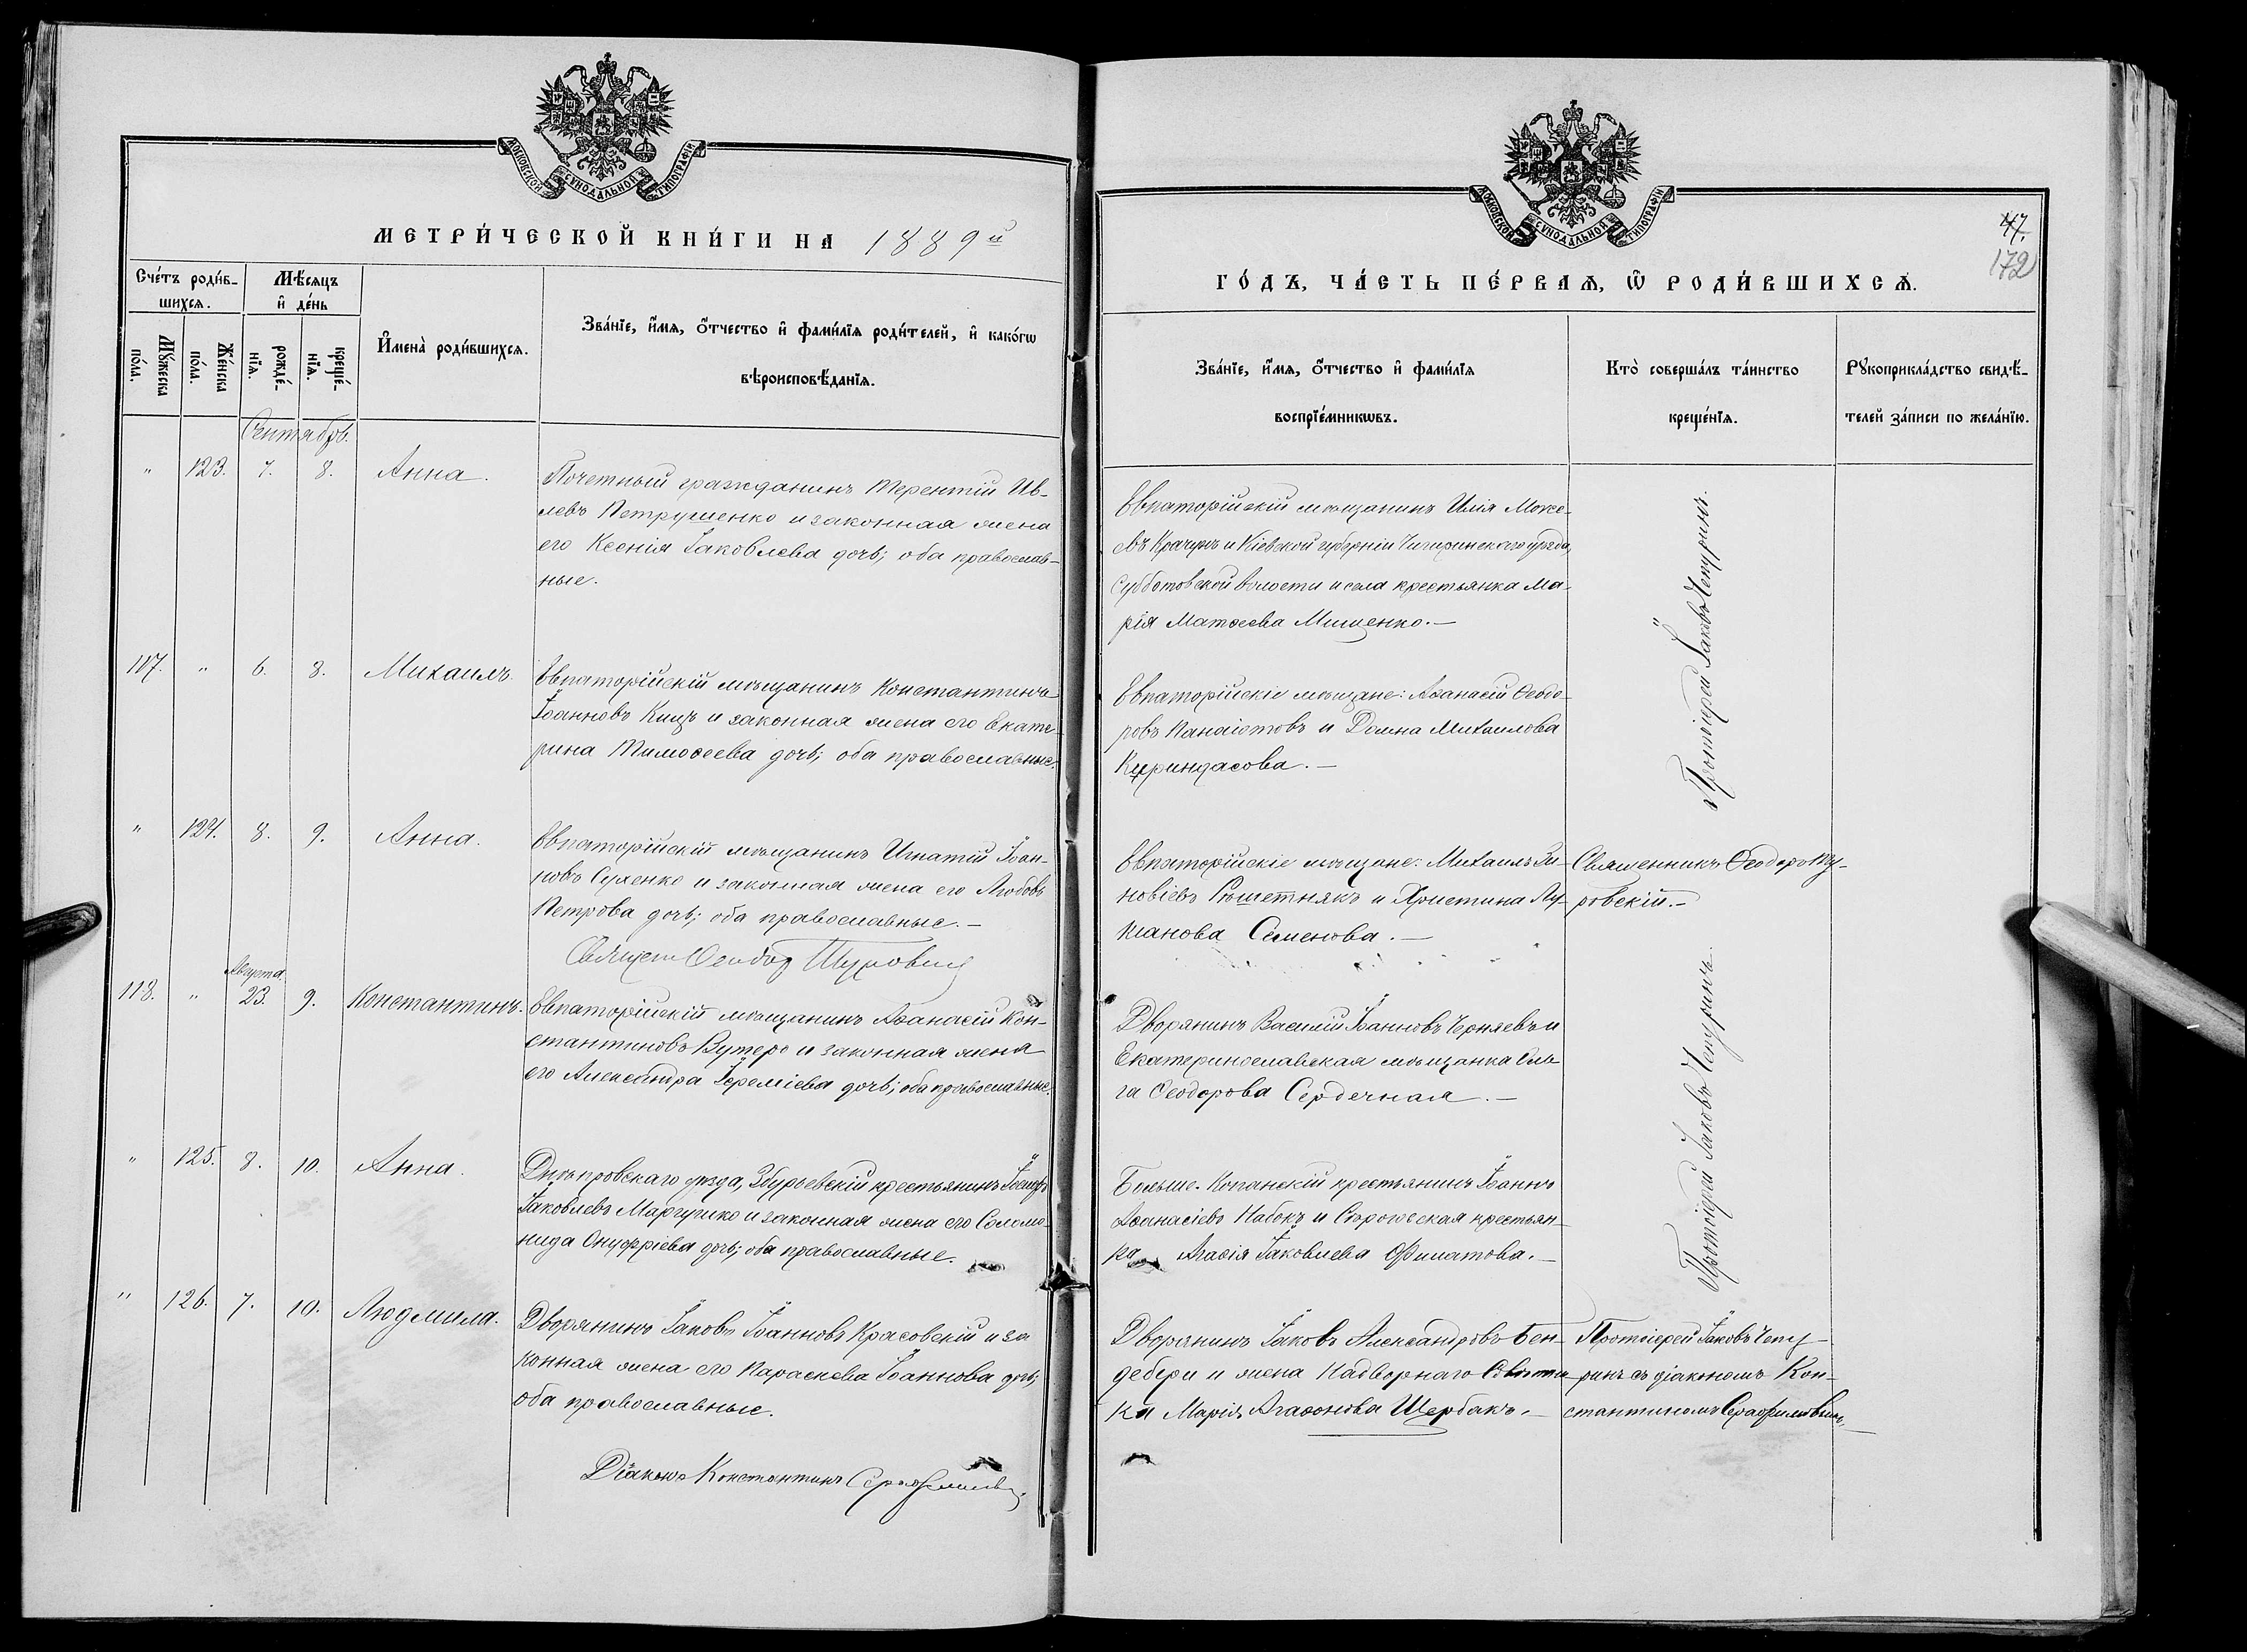 МОСКОВСКОЙ СѴНОДАЛЬНОЙ ТИПОГРАФІИ
МЕТРИ́ЧЕСКОЙ КНИ́ГИ НА 1889й
Сче́тъ роди́в-
шихсѧ.
Мѣ́сѧцъ
и҆ де́нь
Мꙋ́жеска
по́ла.
Же́нска
по́ла.
рожде́-
нїѧ.
креще́-
нїѧ.
И҆мена̀ роди́вшихсѧ.
Зва́нїе, и҆́мѧ, ѻ҆́тчество и҆ фами́лїѧ роди́телей, и҆ како́гѡ
вѣроисповѣ́данїѧ.
Сентябрь.
" 123. 7. 8. Анна.
Почетный гражданинъ Терентій Ив-
левъ Петрушенко и законная жена
его Ксенія Іаковлева дочь; оба православ-
ные.
117. " 6. 8. Михаилъ.
Евпаторійскій мѣщанинъ Константинъ
Іоанновъ Кицъ и законная жена его Екате-
рина Тимоѳеева дочь; оба православные.
" 124. 8. 9. Анна.
Евпаторійскій мѣщанинъ Игнатій Іоан-
новъ Сухенко и законная жена его Любовь
Петрова дочь; оба православные.—
Священ Ѳеодор Шуровский
Августа
118. " 23. 9. Константинъ.
Евпаторійскій мѣщанинъ Аѳанасій Кон-
стантиновъ Вутеро и законная жена
его Александра Іереміева дочь; оба православные.
" 125. 8. 10. Анна.
Днѣпровскаго уѣзда, Збурьевскій крестьянинъ Іосифъ
Іаковлевъ Маргушко и законная жена его Соломо-
нида Онуфріева дочь; оба православные.
" 126. 7. 10. Людмила.
Дворянинъ Іаковъ Іоанновъ Красовскій и за
конная жена его Параскева Іоаннова дочь;
оба православные.
Діаконъ Константинъ Серафимовъ
МОСКОВСКОЙ СѴНОДАЛЬНОЙ ТИПОГРАФІИ
47.
172
ГО́ДЪ, ЧА́СТЬ ПЕ́РВАѦ, Ѽ РОДИ́ВШИХСѦ.
Зва́нїе, и҆́мѧ, ѻ҆́тчество и҆ фами́лїѧ
воспрїе́мникѡвъ.
Кто̀ соверша́лъ та́инство
креще́нїѧ.
Рꙋкоприкла́дство свидѣ́-
телей за́писи по жела́нїю.
Евпаторійскій мѣщанинъ Илія Моисе-
евъ Крачунъ и Кіевской губерніи Чигиринскаго уѣзда,
Субботовской волости и села крестьянка Ма-
рія Матѳеева Мищенко.—
Протоіерей Іаковъ Чепуринъ.
Евпаторійскіе мѣщане: Аѳанасій Ѳеодо-
ровъ Панаіотовъ и Домна Михаилова
Куриндасова.—
Евпаторійскіе мѣщане: Михаилъ Зи-
новіевъ Рѣшетнякъ и Христина Лу-
кіанова Семенова.—
Священникъ Ѳеодоръ Шу-
ровскій.—
Дворянинъ Василій Іоанновъ Черняевъ и
Екатеринославская мѣщанка Оль
га Ѳеодорова Сердечная.—
Протоіерей Іаковъ Чепуринъ.
Больше-Копанскій крестьянинъ Іоаннъ
Аѳанасіевъ Набокъ и Строгоевская крестьян-
ка Агаѳія Іаковлева Филатова.—
Дворянинъ Іаковъ Александровъ Бен-
дебери и жена Надворнаго Совѣтни-
ка Марія Агаѳонова Щербакъ.—
Протоіерей Іаковъ Чепу-
ринъ съ діакономъ Кон-
стантиномъ Серафимовымъ.—